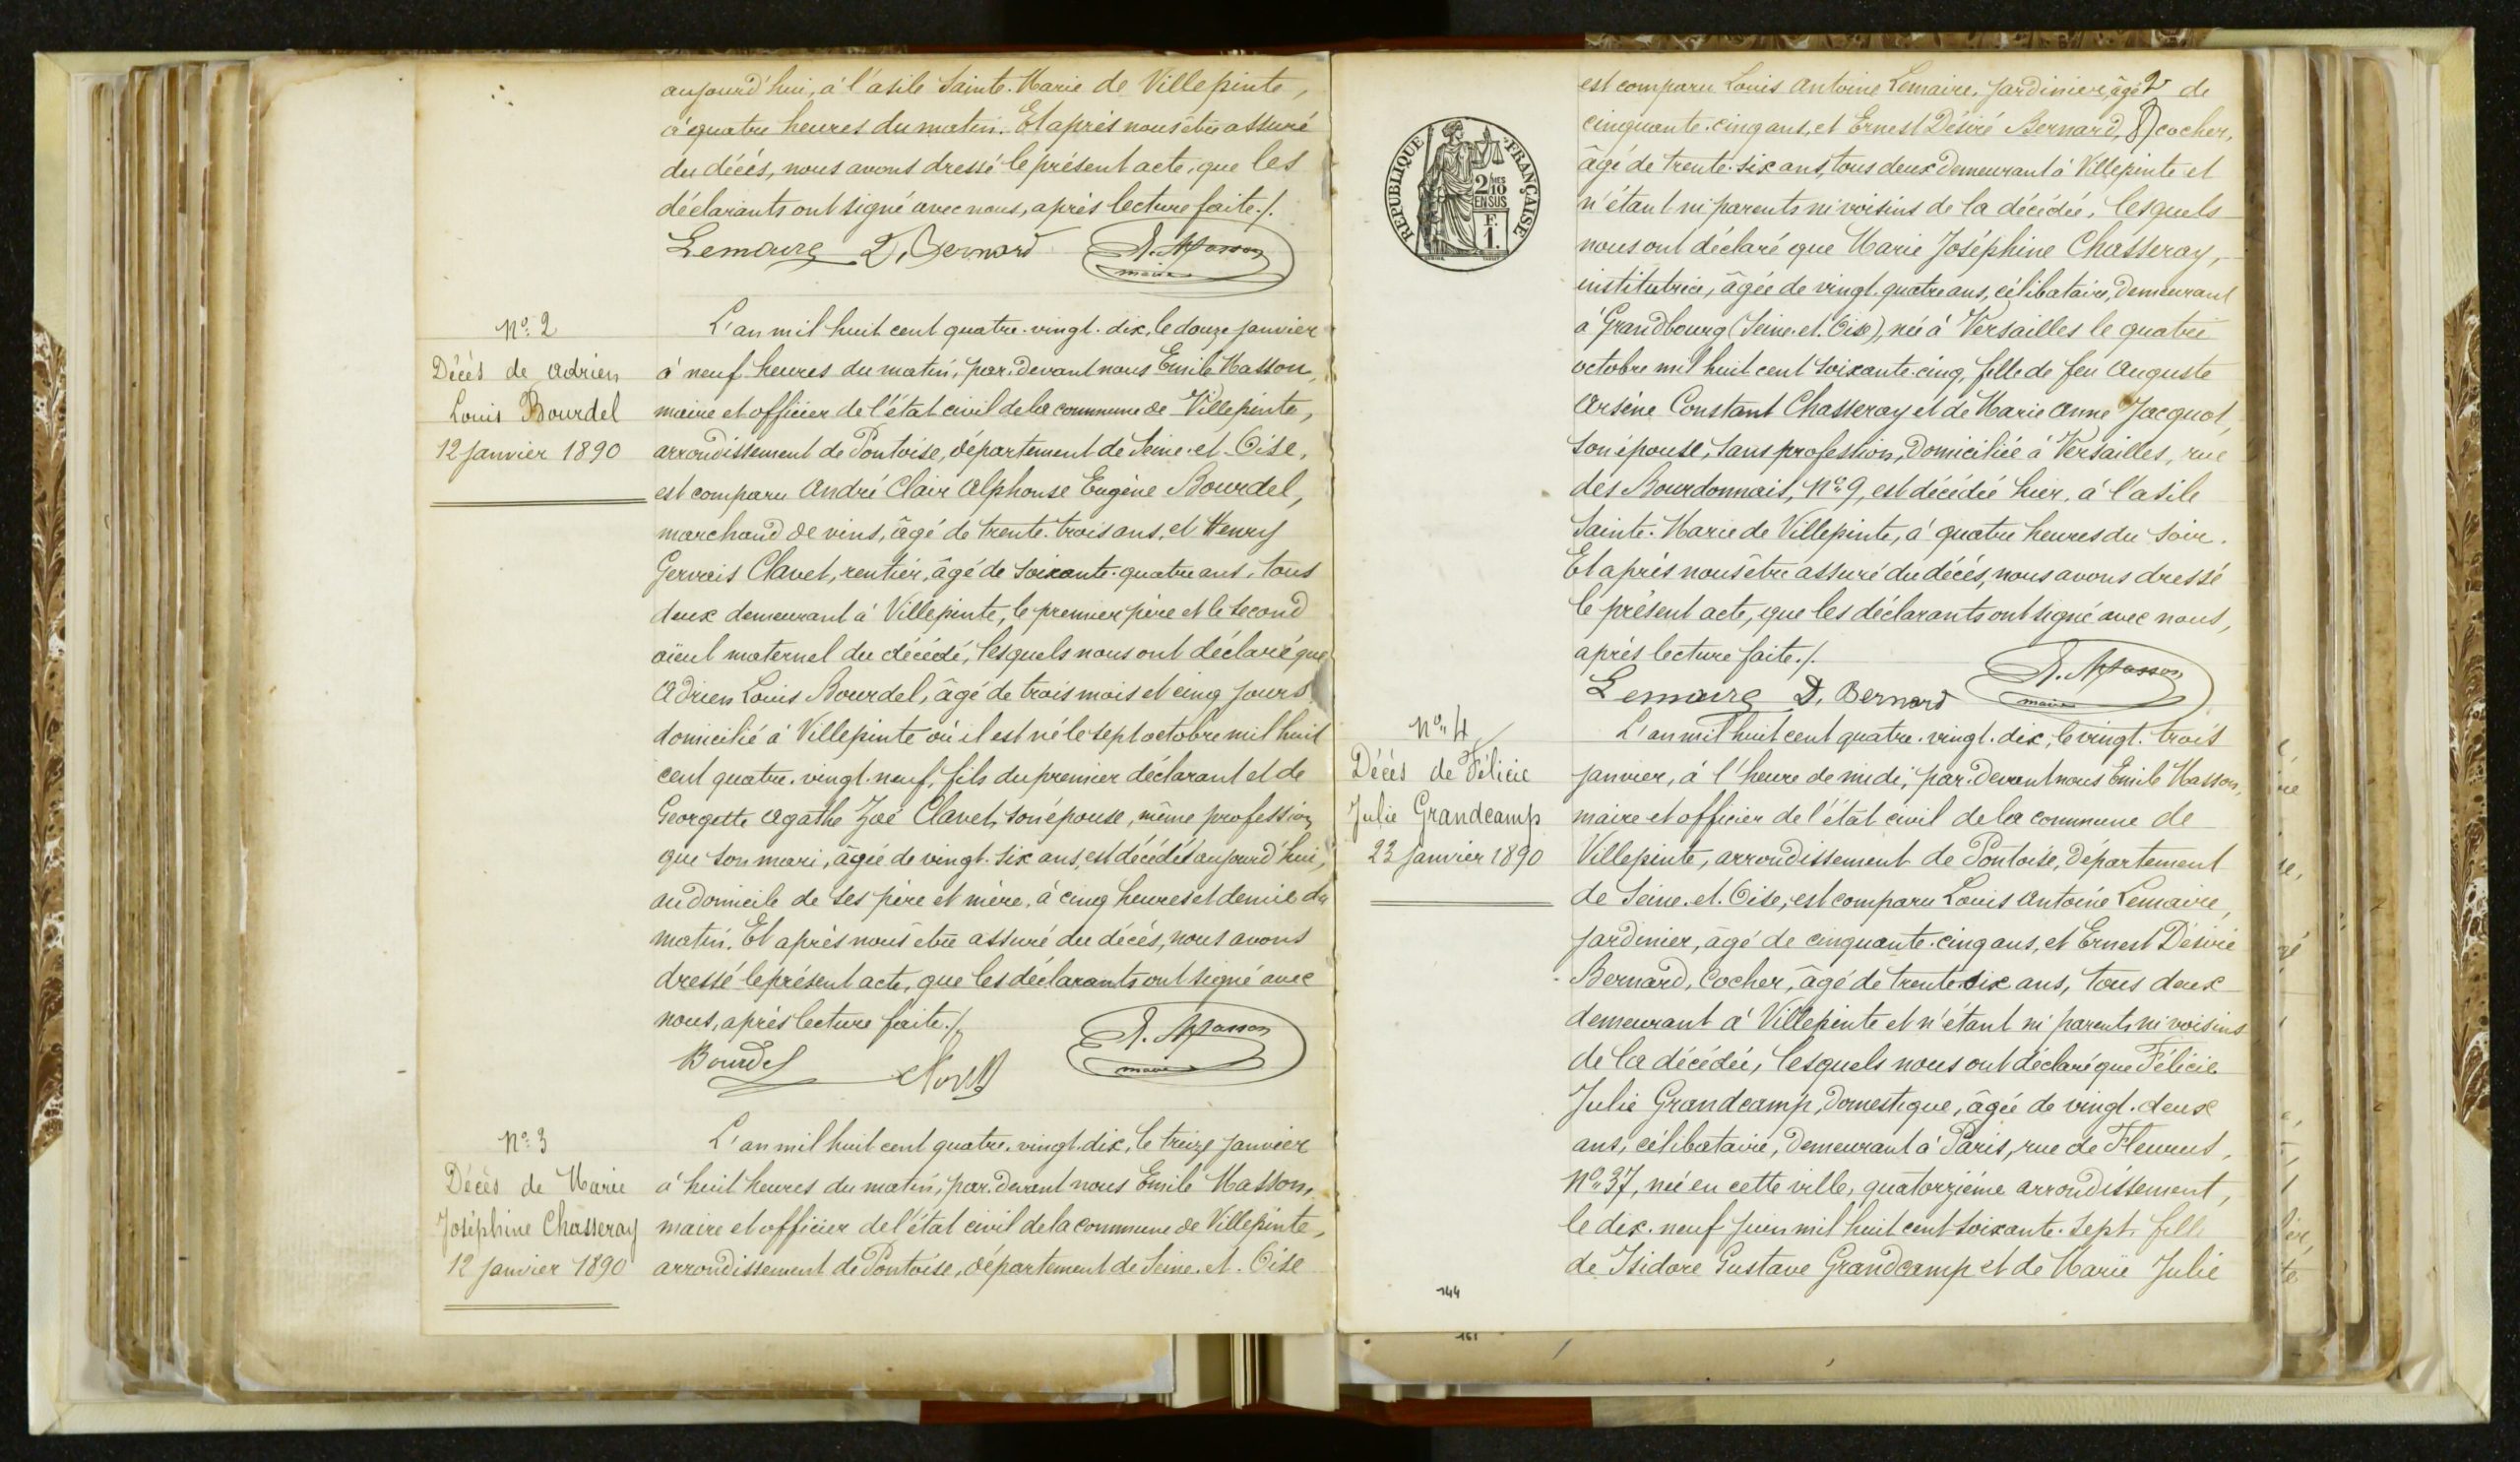 aujourd'hui, à l'asile Sainte-Marie de Villepinte,
à quatre heures du matin. Et après nous être assuré
du décès, nous avons dressé le présent acte, que les
déclarants ont signé avec nous, après lecture faite./.
Lemaire D. Bernard E. Masson
maire
N° 2
Décès de Adrien
Louis Bourdel
12 Janvier 1890
L'an mil huit cent quatre-vingt-dix, le douze janvier
à neuf heures du matin, par-devant nous Emile Masson,
maire et officier de l'état civil de la commune de Villepinte,
arrondissement de Pontoise, département de Seine-et-Oise,
est comparu André Clair Alphonse Eugène Bourdel,
marchand de vins, âgé de trente-trois ans, et Henry
Gervais Clavet, rentier, âgé de soixante-quatre ans, tous
deux demeurant à Villepinte, le premier père et le second
aïeul maternel du décédé, lesquels nous ont déclaré que
Adrien Louis Bourdel, âgé de trois mois et cinq jours
domicilié à Villepinte où il est né le sept octobre mil huit
cent quatre-vingt-neuf, fils du premier déclarant et de
Georgette Agathe Zoé Clavet, son épouse, même profession
que son mari, âgée de vingt-six ans, est décédé aujourd'hui,
au domicile de ses père et mère, à cinq heures et demie du
matin. Et après nous être assuré du décès, nous avons
dressé le présent acte, que les déclarants ont signé avec
nous, après lecture faite./.
Bourdel Clavet E. Masson
maire
N° 3
Décès de Marie
Joséphine Chasseray
12 Janvier 1890
L'an mil huit cent quatre-vingt-dix, le treize janvier
à huit heures du matin, par-devant nous Emile Masson,
maire et officier de l'état civil de la commune de Villepinte,
arrondissement de Pontoise, département de Seine-et-Oise
REPUBLIQUE FRANÇAISE
2/10
EN SUS
F.
1.
est comparu Louis Antoine Lemaire, jardinier, âgé de
cinquante-cinq ans, et Ernest Désiré Bernard, cocher,
âgé de trente-six ans, tous deux demeurant à Villepinte et
n'étant ni parents ni voisins de la décédée, lesquels
nous ont déclaré que Marie Joséphine Chasseray,
institutrice, âgée de vingt-quatre ans, célibataire, demeurant
à Grandbourg (Seine-et-Oise), née à Versailles le quatre
octobre mil huit cent soixante-cinq, fille de feu Auguste
Arsène Constant Chasseray et de Marie Anne Jacquot,
son épouse, sans profession, domiciliée à Versailles, rue
des Bourdonnais, N° 9, est décédée hier, à l'asile
Sainte-Marie de Villepinte, à quatre heures du soir.
Et après nous être assuré du décès, nous avons dressé
le présent acte, que les déclarants ont signé avec nous,
après lecture faite./.
Lemaire D. Bernard E. Masson
maire
N° 4
Décès de Félicie
Julie Grandcamp
23 Janvier 1890
L'an mil huit cent quatre-vingt-dix, le vingt-trois
janvier, à l'heure de midi, par-devant nous Emile Masson,
maire et officier de l'état civil de la commune de
Villepinte, arrondissement de Pontoise, département
de Seine-et-Oise, est comparu Louis Antoine Lemaire,
jardinier, âgé de cinquante-cinq ans, et Ernest Désiré
Bernard, cocher, âgé de trente-six ans, tous deux
demeurant à Villepinte et n'étant ni parents ni voisins
de la décédée, lesquels nous ont déclaré que Félicie
Julie Grandcamp, domestique, âgée de vingt-deux
ans, célibataire, demeurant à Paris, rue de Fleurus,
N° 37, née en cette ville, quatorzième arrondissement,
le dix-neuf juin mil huit cent soixante-sept, fille
de Isidore Gustave Grandcamp et de Marie Julie
144
161